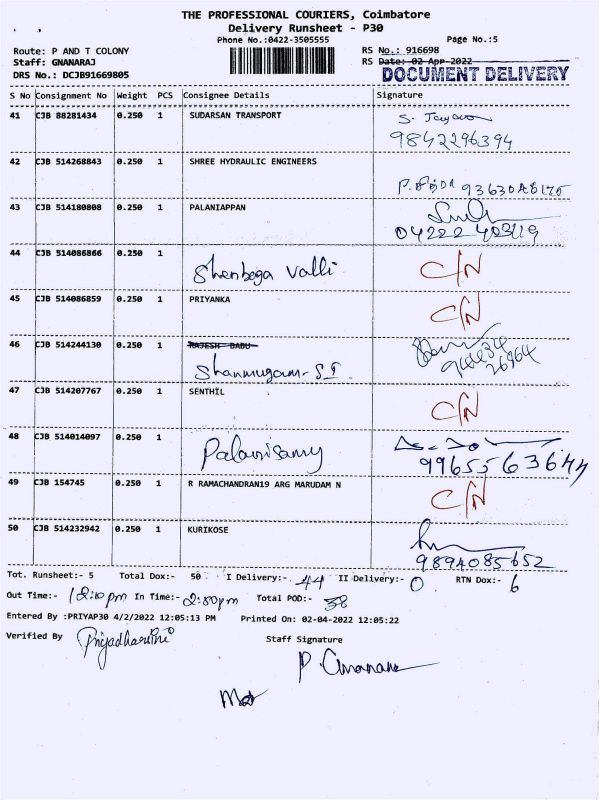 THE PROFESSIONAL COURIERS, Coimbatore
Delivery Runsheet - P30
Phone No.:0422-3505555
Page No.:5
Route: P AND T COLONY
RS No.: 916698
Staff: GNANARAJ
RS Date: 02-Apr-2022
DRS No.: DCJB91669805
DOCUMENT DELIVERY
S No Consignment No Weight PCS Consignee Details Signature
41 CJB 88281434 0.250 1 SUDARSAN TRANSPORT
9842296394
42 CJB 514268843 0.250 1 SHREE HYDRAULIC ENGINEERS
43 CJB 514180808 0.250 1 PALANIAPPAN
04222 403119
44 CJB 514086866 0.250 1 Shenbega Valli C/N
45 CJB 514086859 0.250 1 PRIYANKA C/N
46 CJB 514244130 0.250 1 RAJESH BABU
Shanmugam-S I
47 CJB 514207767 0.250 1 SENTHIL C/N
48 CJB 514014097 0.250 1 Palanisamy
9965563644
49 CJB 154745 0.250 1 R RAMACHANDRAN19 ARG MARUDAM N C/N
50 CJB 514232942 0.250 1 KURIKOSE
9894085652
Tot. Runsheet:- 5 Total Dox:- 50 I Delivery:- 44 II Delivery:- 0 RTN Dox:- 6
Out Time:- 12:10pm In Time:- 2:80pm Total POD:- 38
Entered By :PRIYAP30 4/2/2022 12:05:13 PM Printed On: 02-04-2022 12:05:22
Verified By Priyadharthi Staff Signature